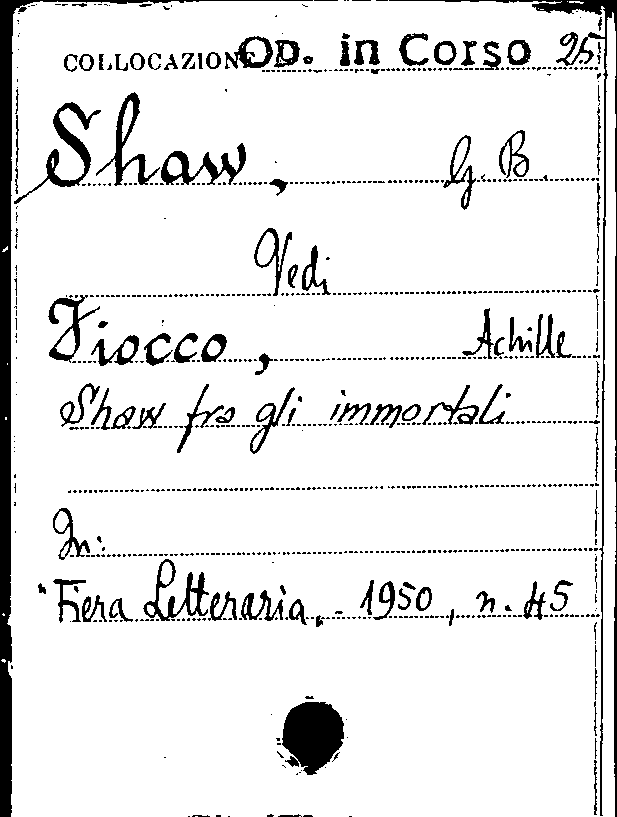 COLLOCAZIONE Op. in Corso 25
Shaw, G. B.
Vedi
Fiocco, Achille
Shaw fra gli immortali
In:
"Fiera Letteraria„ - 1950, n. 45